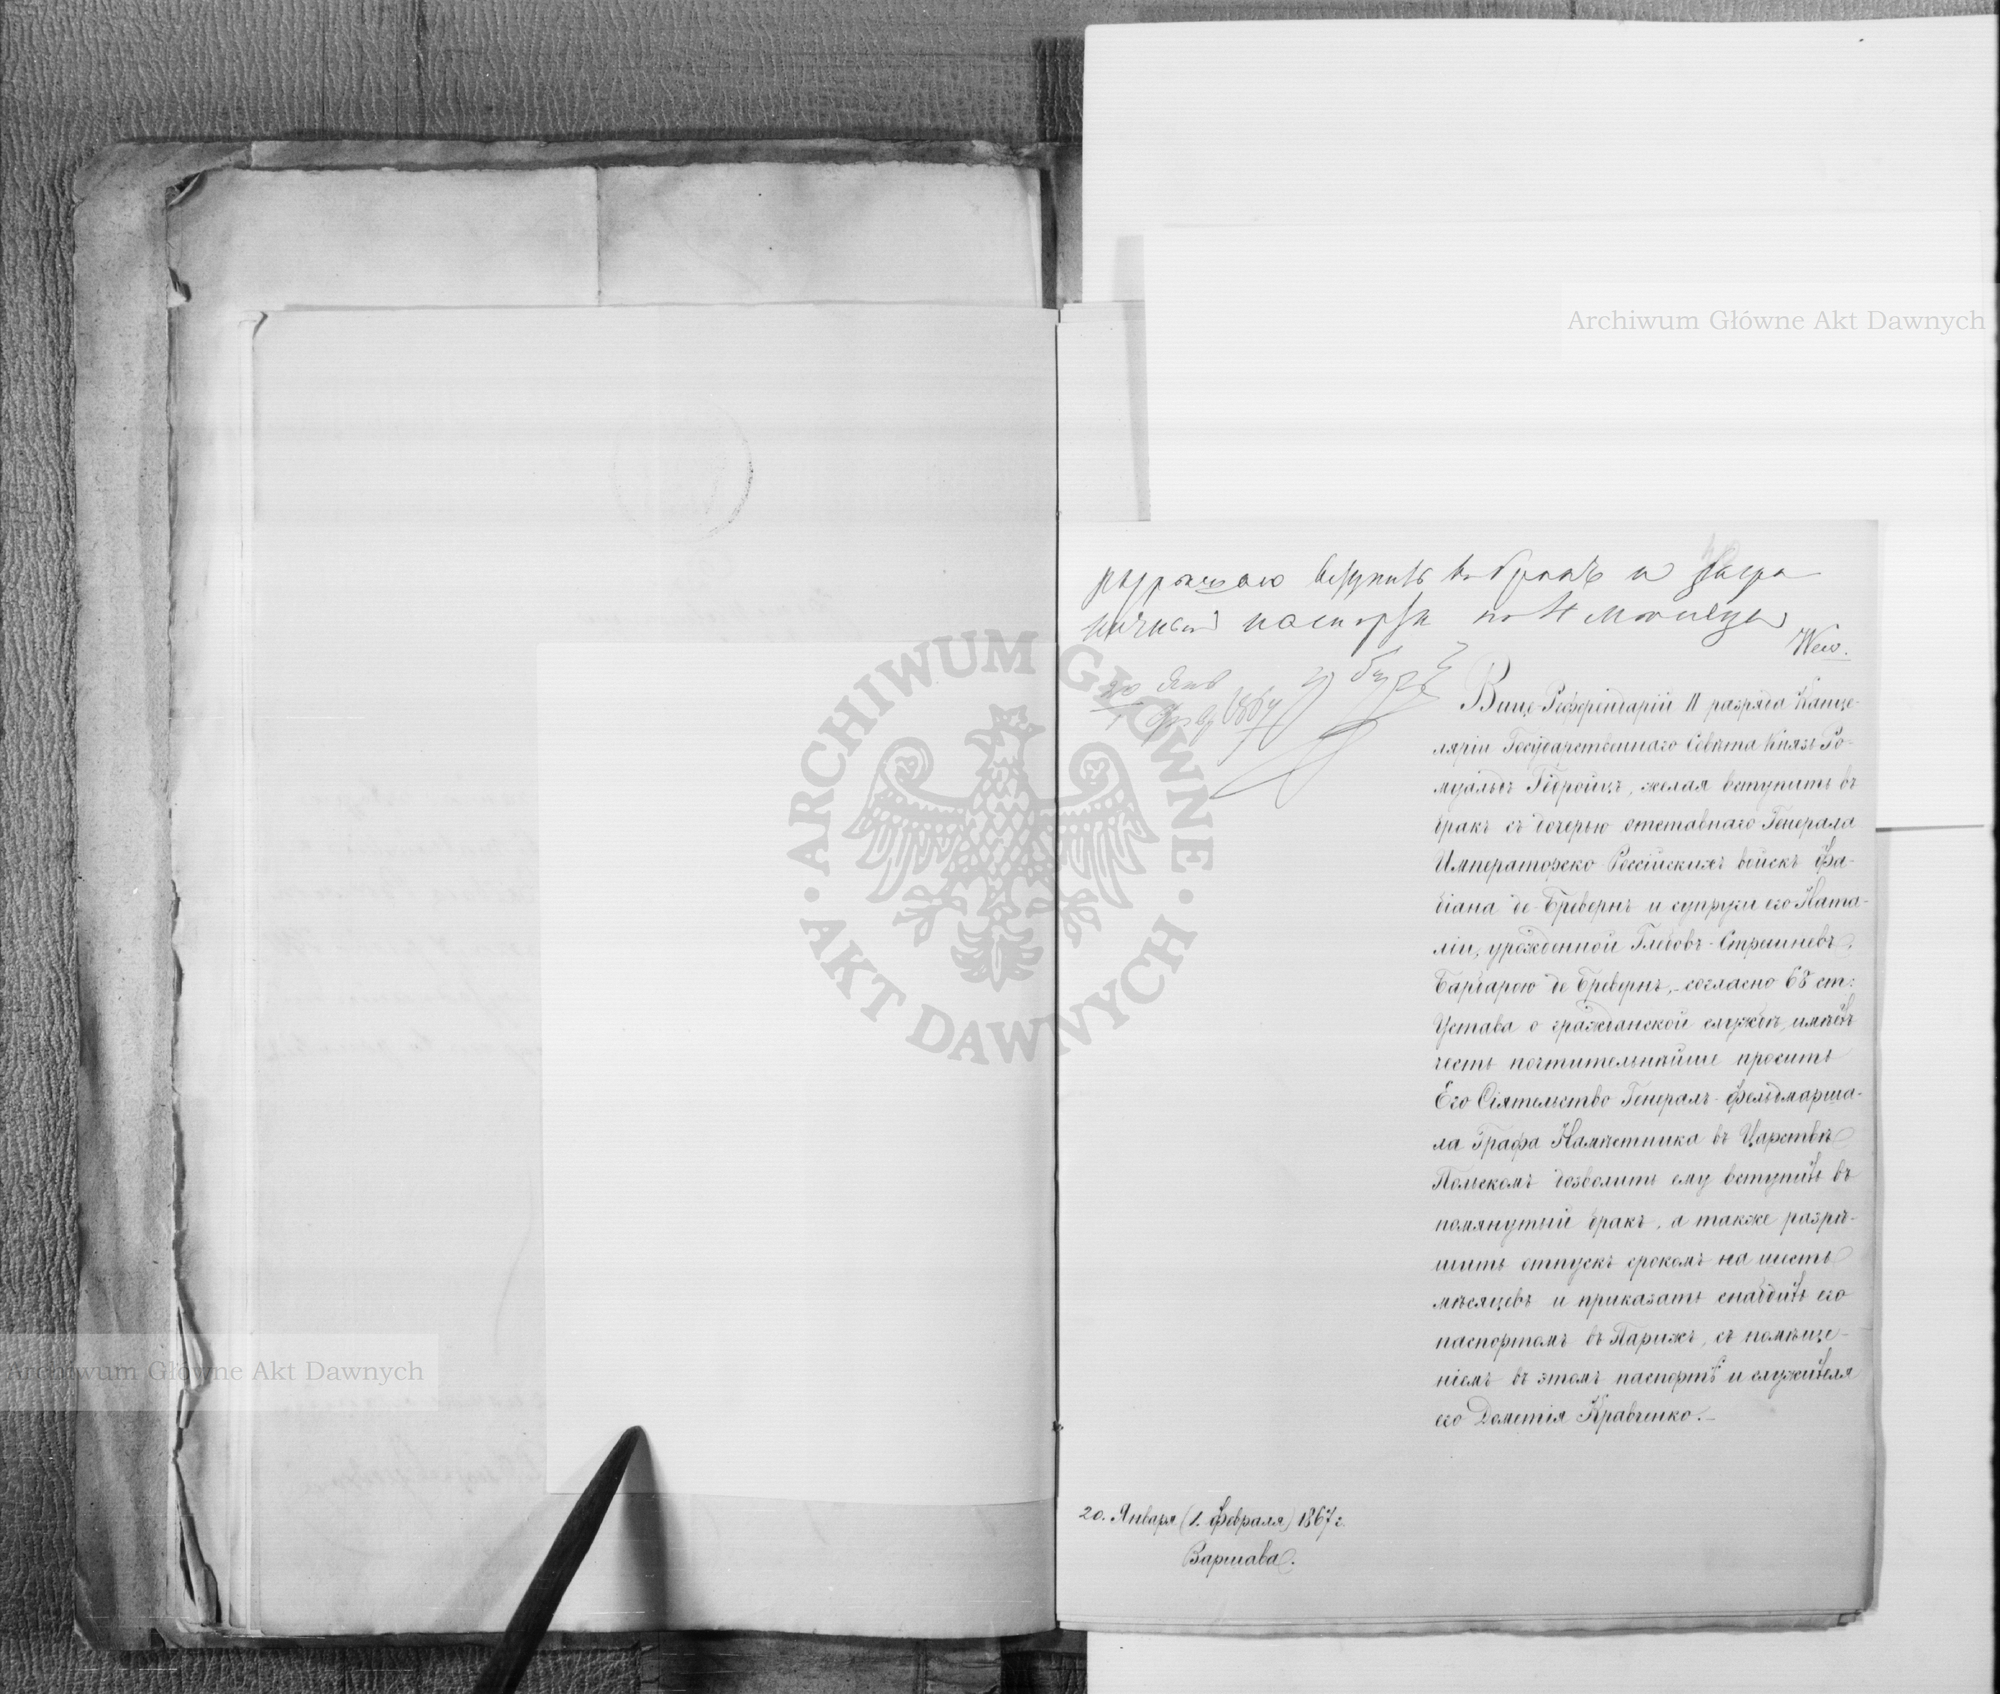 Archiwum Główne Akt Dawnych
разрѣшаю вступить въ бракъ и загра
ничный паспортъ на 4 мѣсяцы
20 Янв
1 Фев 1867
Вице-Референдарій II разряда Канце-
ляріи Государственнаго Совѣта Князь Ро-
муальдъ Гедройцъ, желая вступить въ
бракъ съ дочерью отставнаго Генерала
Императорско-Россійскихъ войскъ Фа-
біана де-Бревернъ и супруги его Ната-
ліи, урожденной Глебовъ-Стрешневъ,
Барбарою де Бревернъ, согласно 68 ст:
Устава о гражданской службѣ, имѣетъ
честь почтительнѣйше просить
Его Сіятельство Генералъ-Фельдмарша-
ла Графа Намѣстника въ Царствѣ
Польскомъ дозволить ему вступить въ
помянутый бракъ, а также разрѣ-
шить отпускъ срокомъ на шесть
мѣсяцевъ и приказать снабдить его
паспортомъ въ Парижъ, съ помѣще-
ніемъ въ этомъ паспортѣ и служителя
его Дометія Кравченко.-
20. Января (1. Февраля) 1867 г.
Варшава.
ARCHIWUM GŁÓWNE AKT DAWNYCH
Archiwum Główne Akt Dawnych